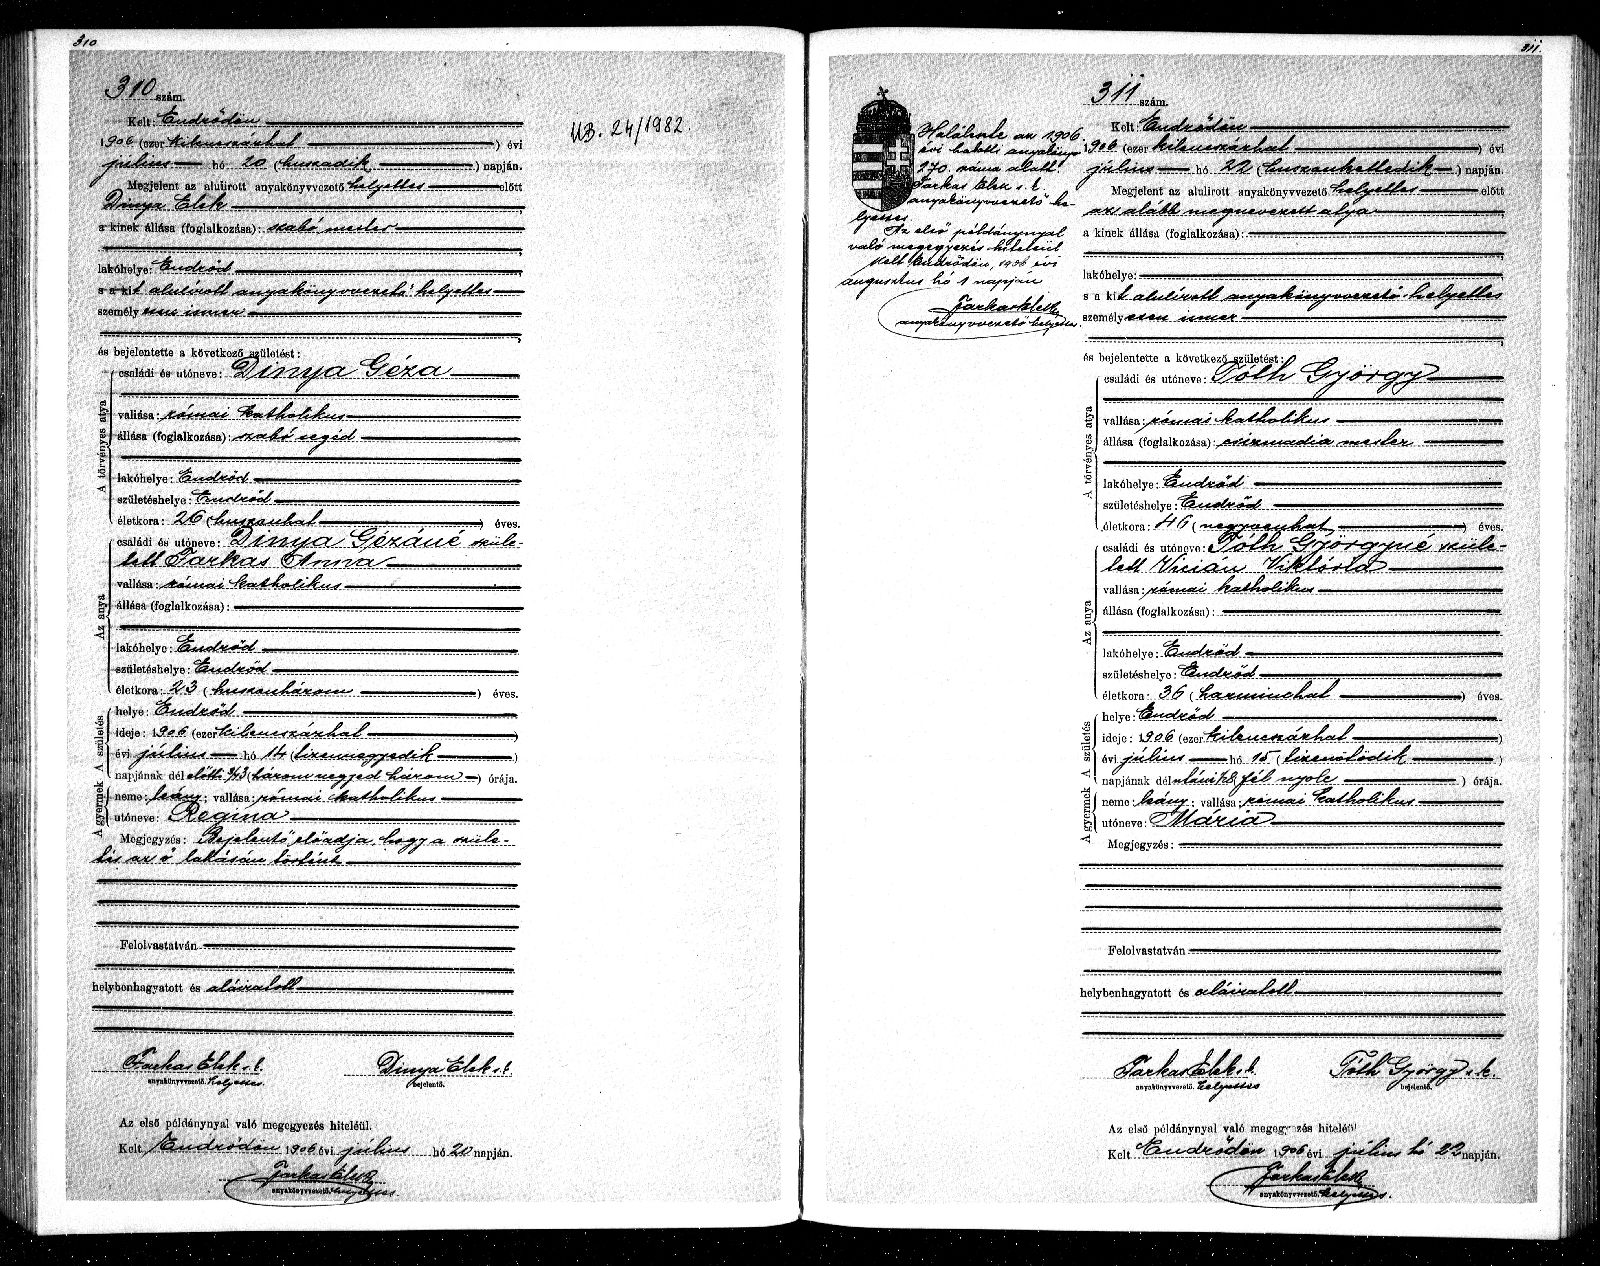 310
310 szám.
Kelt: Endrődön
1906 (ezer kilenczszázhat) évi
július hó 20 (huszadik) napján.
Megjelent az alulirott anyakönyvvezető helyettes előtt
Dinya Elek
a kinek állása (foglalkozása): szabó mester
lakóhelye: Endrőd
s a kit alulírott anyakönyvvezető helyettes
személyesen ismer
és bejelentette a következő születést:
A törvényes atya
családi és utóneve: Dinya Géza
vallása: római katholikus
állása (foglalkozása): szabó segéd
lakóhelye: Endrőd
születéshelye: Endrőd
életkora: 26 (huszonhat) éves.
Az anya
családi és utóneve: Dinya Gézáné szüle-
tett Farkas Anna
vallása: római katholikus
állása (foglalkozása):
lakóhelye: Endrőd
születéshelye: Endrőd
életkora: 23 (huszonhárom) éves.
A születés
helye: Endrőd
ideje: 1906 (ezer kilenczszázhat)
évi július hó 14 (tizennegyedik)
napjának délelőtti 3/43 (három negyed három) órája.
A gyermek
neme: leány; vallása: római katholikus
utóneve: Regina
Megjegyzés: Bejelentő előadja, hogy a szüle-
tés az ő lakásán történt
Felolvastatván
helybenhagyatott és aláíratott
Farkas Elek s. k.
anyakönyvvezető helyettes
Dinya Elek s. k.
bejelentő.
Az első példánynyal való megegyezés hiteléül.
Kelt Endrődön 1906 évi július hó 20 napján.
Farkas Elek
anyakönyvvezető helyettes
UB. 24/1982.
311.
Halálozte az 1906
évi halotti anyakönyv
270. száma alatt.
Farkas Elek s. k.
anyakönyvvezető he-
lyettes.
Az első példánynyal
való megegyezés hiteléül
Kelt Endrődön, 1906 évi
augusztus hó 1 napján
Farkas Elek
anyakönyvvezető helyettes.
311 szám.
Kelt Endrődön
1906 (ezer kilenczszázhat) évi
július hó 22 (huszonkettedik) napján.
Megjelent az alulirott anyakönyvvezető helyettes előtt
az alább megnevezett atya
a kinek állása (foglalkozása):
lakóhelye:
s a kit alulírott anyakönyvvezető helyettes
személyesen ismer
és bejelentette a következő születést:
A törvényes atya
családi és utóneve: Tóth György
vallása: római katholikus
állása (foglalkozása): csizmadia mester
lakóhelye: Endrőd
születéshelye: Endrőd
életkora: 46 (negyvenhat) éves.
Az anya
családi és utóneve: Tóth Györgyné szüle-
tett Vicián Viktória
vallása: római katholikus
állása (foglalkozása):
lakóhelye: Endrőd
születéshelye: Endrőd
életkora: 36 (harminchat) éves.
A születés
helye: Endrőd
ideje: 1906 (ezer kilenczszázhat)
évi július hó 15 (tizenötödik)
napjának dél fél nyolc) órája.
A gyermek
neme: leány; vallása: római katholikus
utóneve: Mária
Megjegyzés:
Felolvastatván
helybenhagyatott és aláíratott
Farkas Elek s. k.
anyakönyvvezető helyettes
Tóth György s. k.
bejelentő.
Az első példánynyal való megegyezés hiteléül
Kelt Endrődön 1906 évi július hó 22 napján.
Farkas Elek
anyakönyvvezető helyettes.